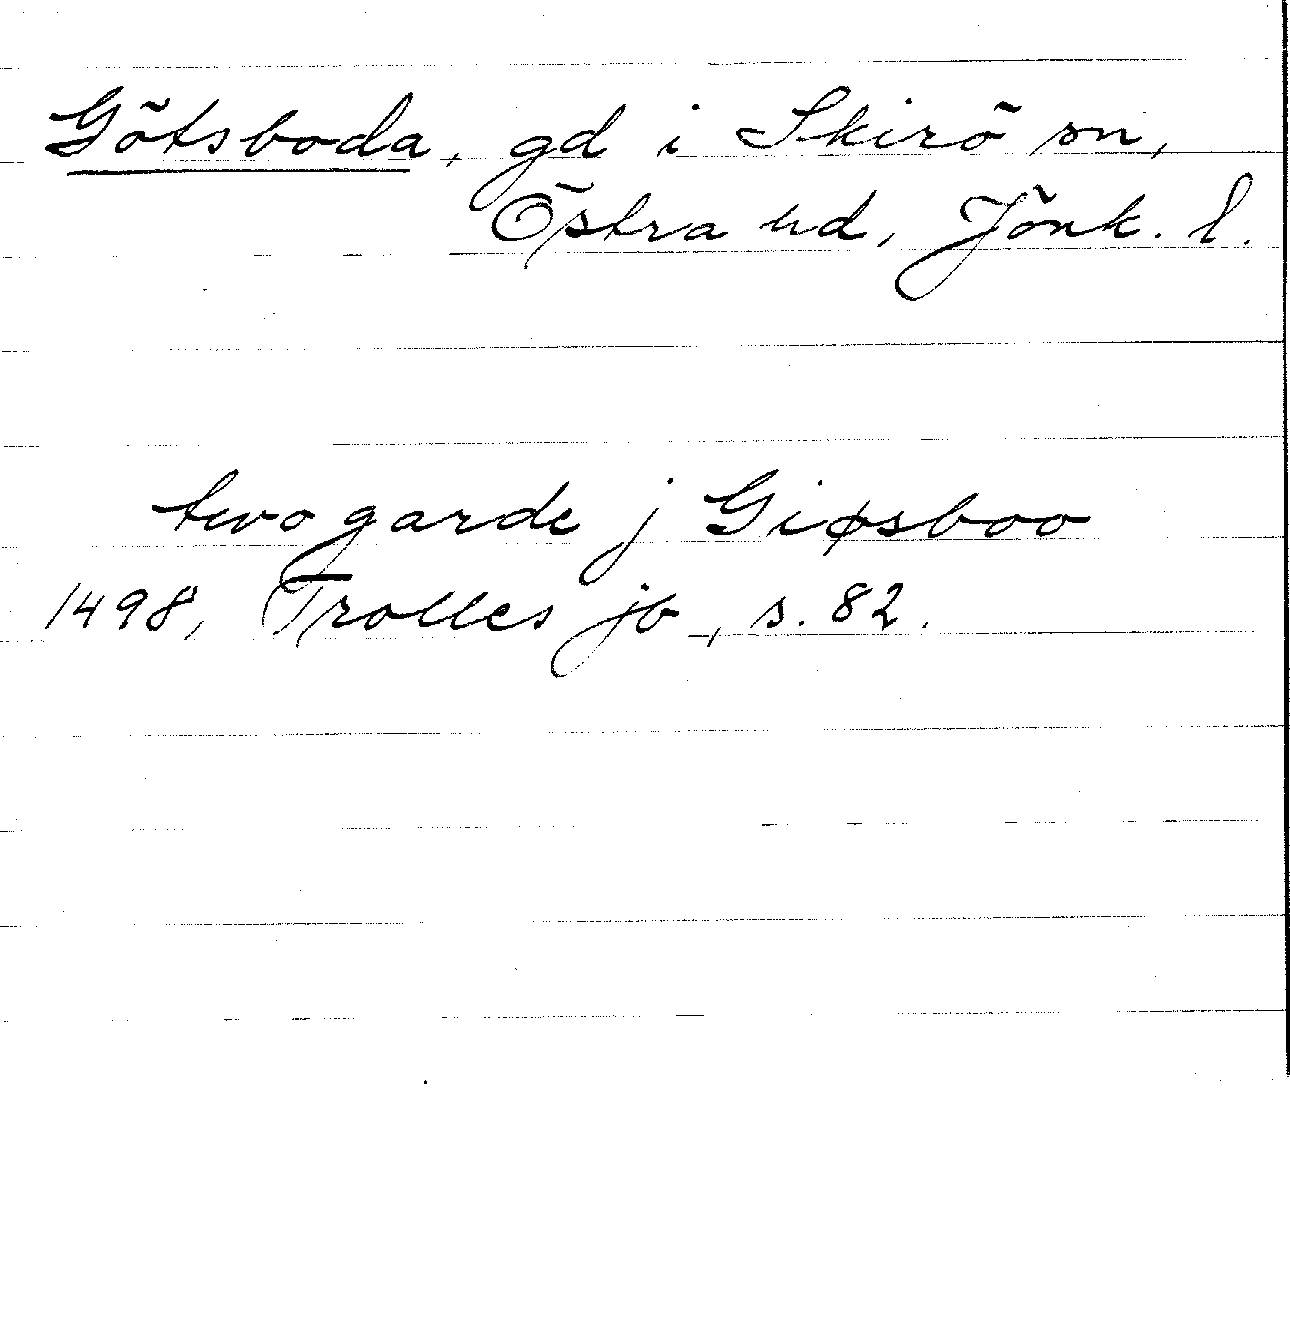 Götsboda, gd i Skirö sn,
Östra hd, Jönk. l.
two garde j Giøsboo
1498, Trolles jb, s. 82.